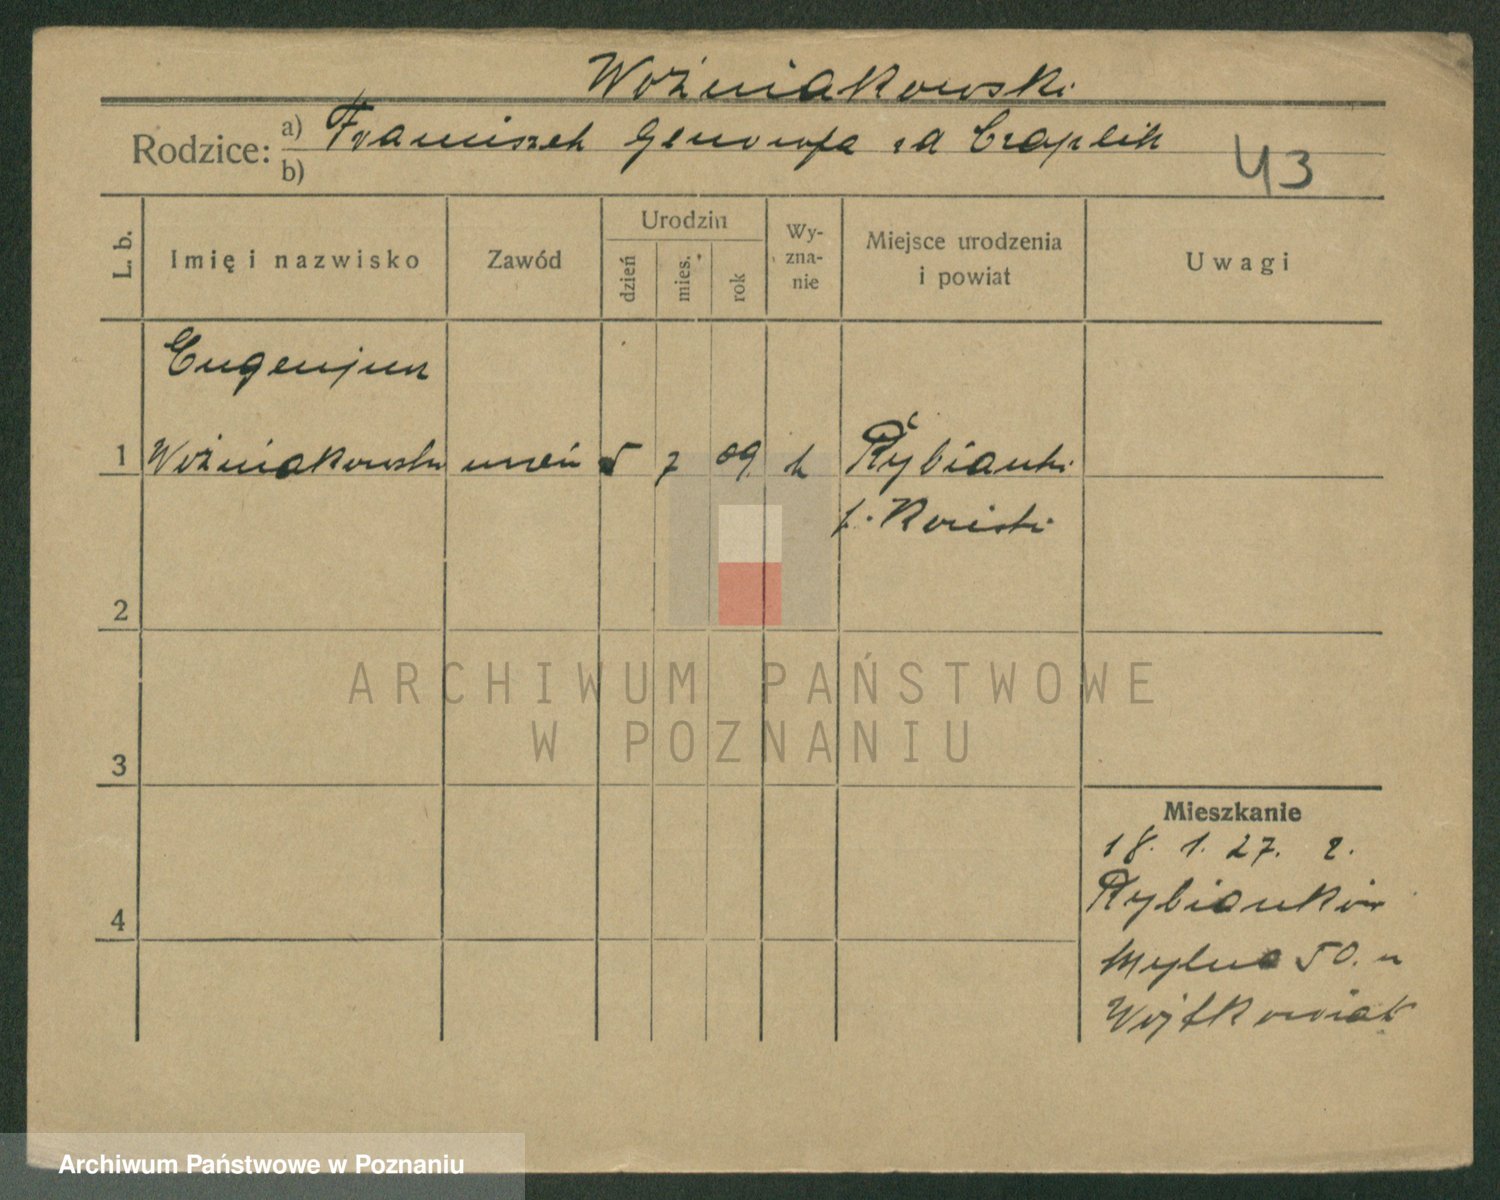 Woźniakowski
Rodzice: a) Franciszek Genowefa zd Czaplik
b)
43
L. b. Imię i nazwisko Zawód Urodzin dzień mies. rok Wyznanie Miejsce urodzenia i powiat Uwagi
Eugenjusz
1 Woźniakowski uczeń 5 7 09 k Rybianki
p. Koniski
2
ARCHIWUM PAŃSTWOWE
W POZNANIU
3
Mieszkanie
18. 1. 27. z.
4
Mylna 50. u
Wojtkowiak
Archiwum Państwowe w Poznaniu